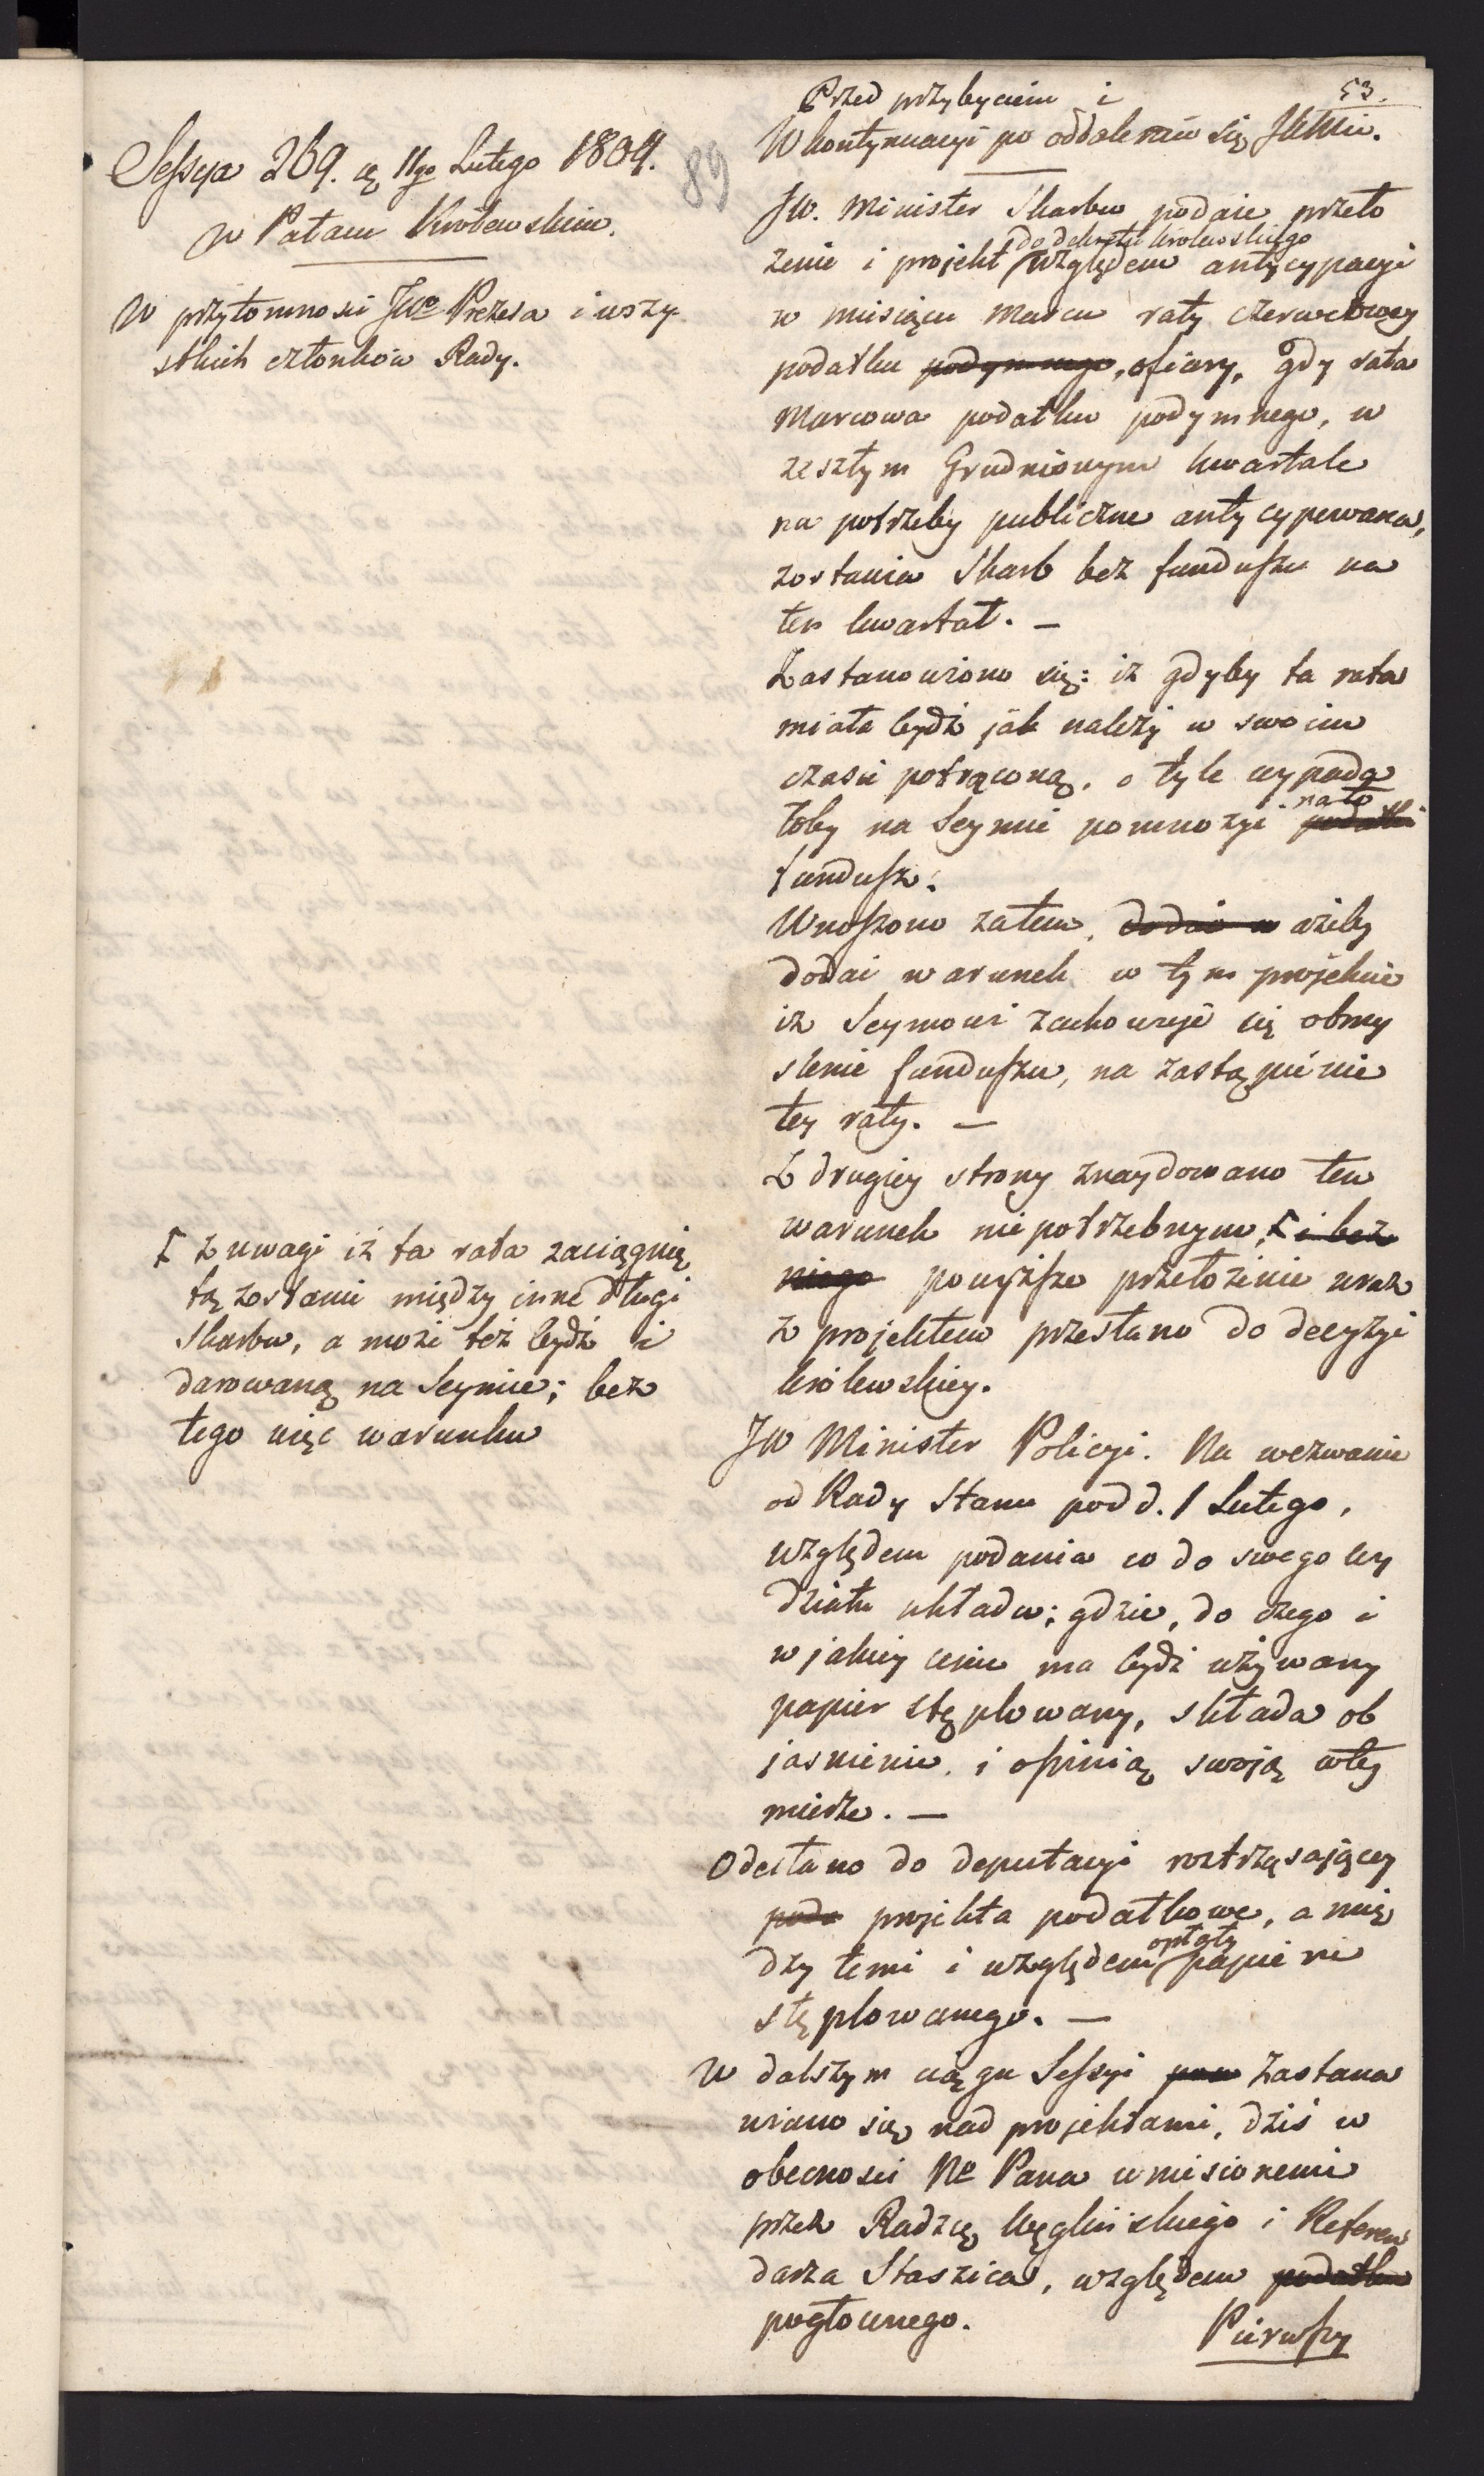 53.
Sessya 269. d. 11go Lutego 1809.
w Pałacu Krolewskim.
89
W przytomnosci JWo Prezesa i wszy-
stkich członków Rady.
Przed przybyciem i
W kontynuacyi po oddaleniu się JKMci.
JW. Minister Skarbu podaie przeło
żenie i projekt do dekretu krolewskiego względem antycypacyi
w miesiącu Marcu raty czerwcowey
podatku podymnego, ofiary, gdy rata
Marcowa podatku podymnego, w
zeszłym Grudniowym kwartale
na potrzeby publiczne antycypowana,
zostawia Skarb bez funduszu na
ten kwartał. —
Zastanowiono się: iż gdyby ta rata
miała bydź jak należy w swoim
czasie potrąconą, o tyle wypada
łoby na Seymie pomnożyć na to podatki
fundusz.
Wnoszono zatem, dodać w ażeby
dodać warunek w tym projekcie
iż Seymowi zachowuje się obmy
slenie funduszu, na zastąpienie
tey raty. —
Z drugiey strony znaydowano ten
warunek niepotrzebnym, i bez
niego powyższe przełożenie wraz
z projektem przesłano do decyzyi
krolewskiey.
Z uwagi iż ta rata zaciągnię
tą zostanie między inne długi
Skarbu, a może też bydź i
darowaną na Seymie; bez
tego więc warunku
JW Minister Policyi. Na wezwanie
od Rady Stanu pod d. 1 Lutego,
względem podania co do swego wy
działu układu; gdzie, do czego i
w jakiey cenie ma bydź używany
papier stęplowany, składa ob
jasnienie, i opinią swoją w tey
mierze. —
Odesłano do deputacyi roztrząsającey
poda projekta podatkowe, a mię
dzy temi i względem opłaty papieru
stęplowanego. —
W dalszym ciągu Sessyi zastana
wiano się nad projektami, dziś w
obecnosci No Pana wniesionemi
przez Radzcę Węglinskiego i Referen
darza Staszica, względem podatku
pogłownego.
Pierwszy